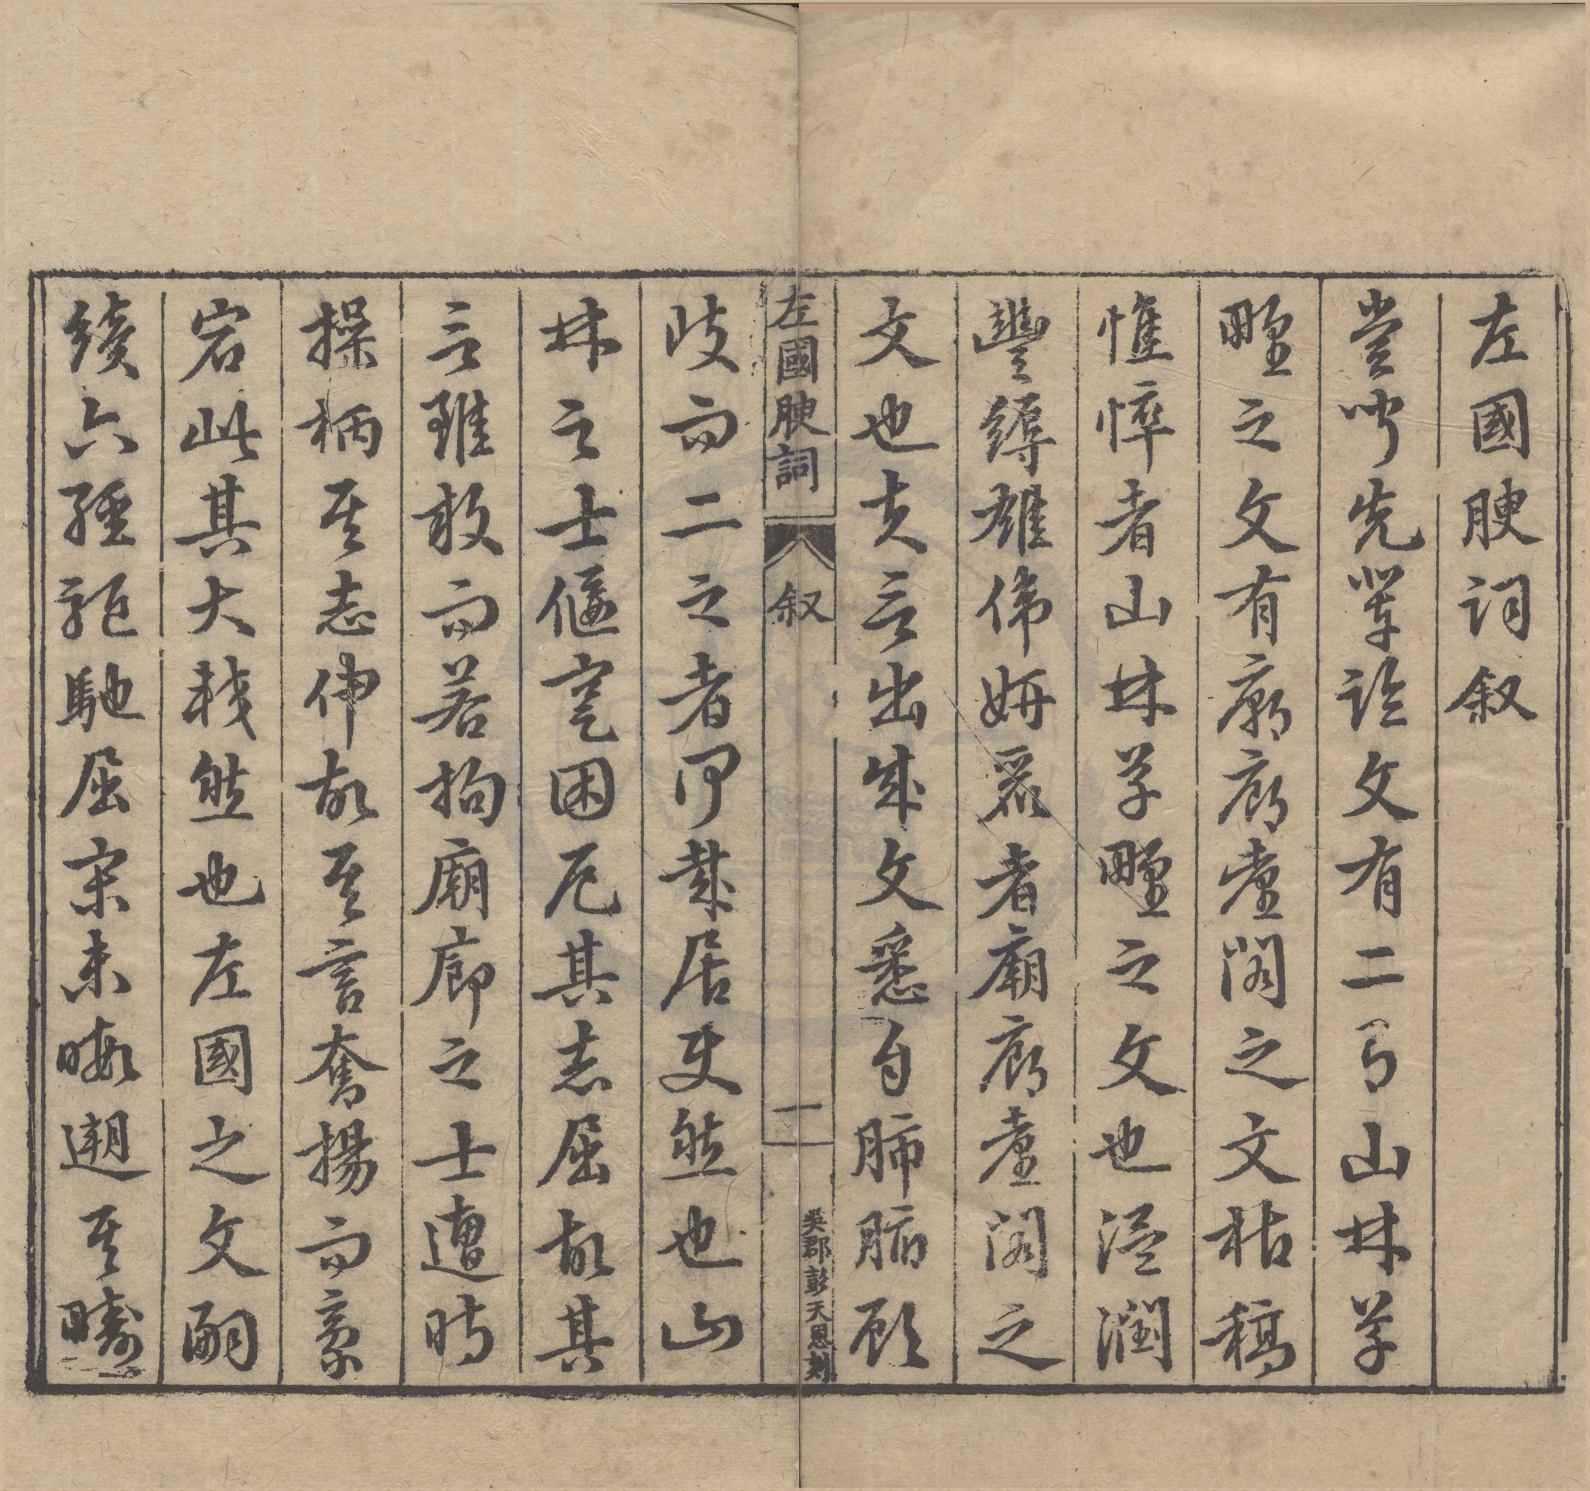 左國腴詞叙
嘗聞先輩論文有二焉山林草
壄之文有廟廊臺閣之文枯槁
憔悴者山林草壄之文也溫潤
豐縟雄偉妍麗者廟廊臺閣之
文也夫言出成文悉自肺腑顧
左國腴詞 叙 一 吳郡彭天恩刻
歧而二之者何哉居使然也山
林之士偃蹇困厄其志屈故其
言雖敢而若拘廟廊之士遭時
操柄其志伸故其言奮揚而豪
宕此其大較然也左國之文嗣
續六經駈馳屈宋未暇遡其疇